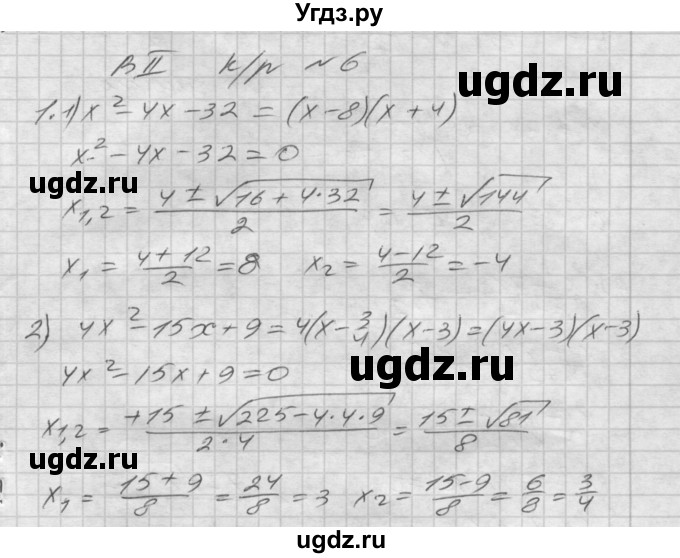 Угдз.ру
В II к/р №6
ugdz.ru
1. 1) x² - 4x - 32 = (x - 8)(x + 4)
x² - 4x - 32 = 0
ugdz.ru
x₁,₂ = (4 ± √(16 + 4·32))/2 = (4 ± √144)/2
x₁ = (4 + 12)/2 = 8 x₂ = (4 - 12)/2 = -4
2) 4x² - 15x + 9 = 4(x - 3/4)(x - 3) = (4x - 3)(x - 3)
4x² - 15x + 9 = 0
ugdz.ru
x₁,₂ = (+15 ± √(225 - 4·4·9))/(2·4) = (15 ± √81)/8
ugdz.ru
x₁ = (15 + 9)/8 = 24/8 = 3 x₂ = (15 - 9)/8 = 6/8 = 3/4
ugdz.ru
ugdz.ru